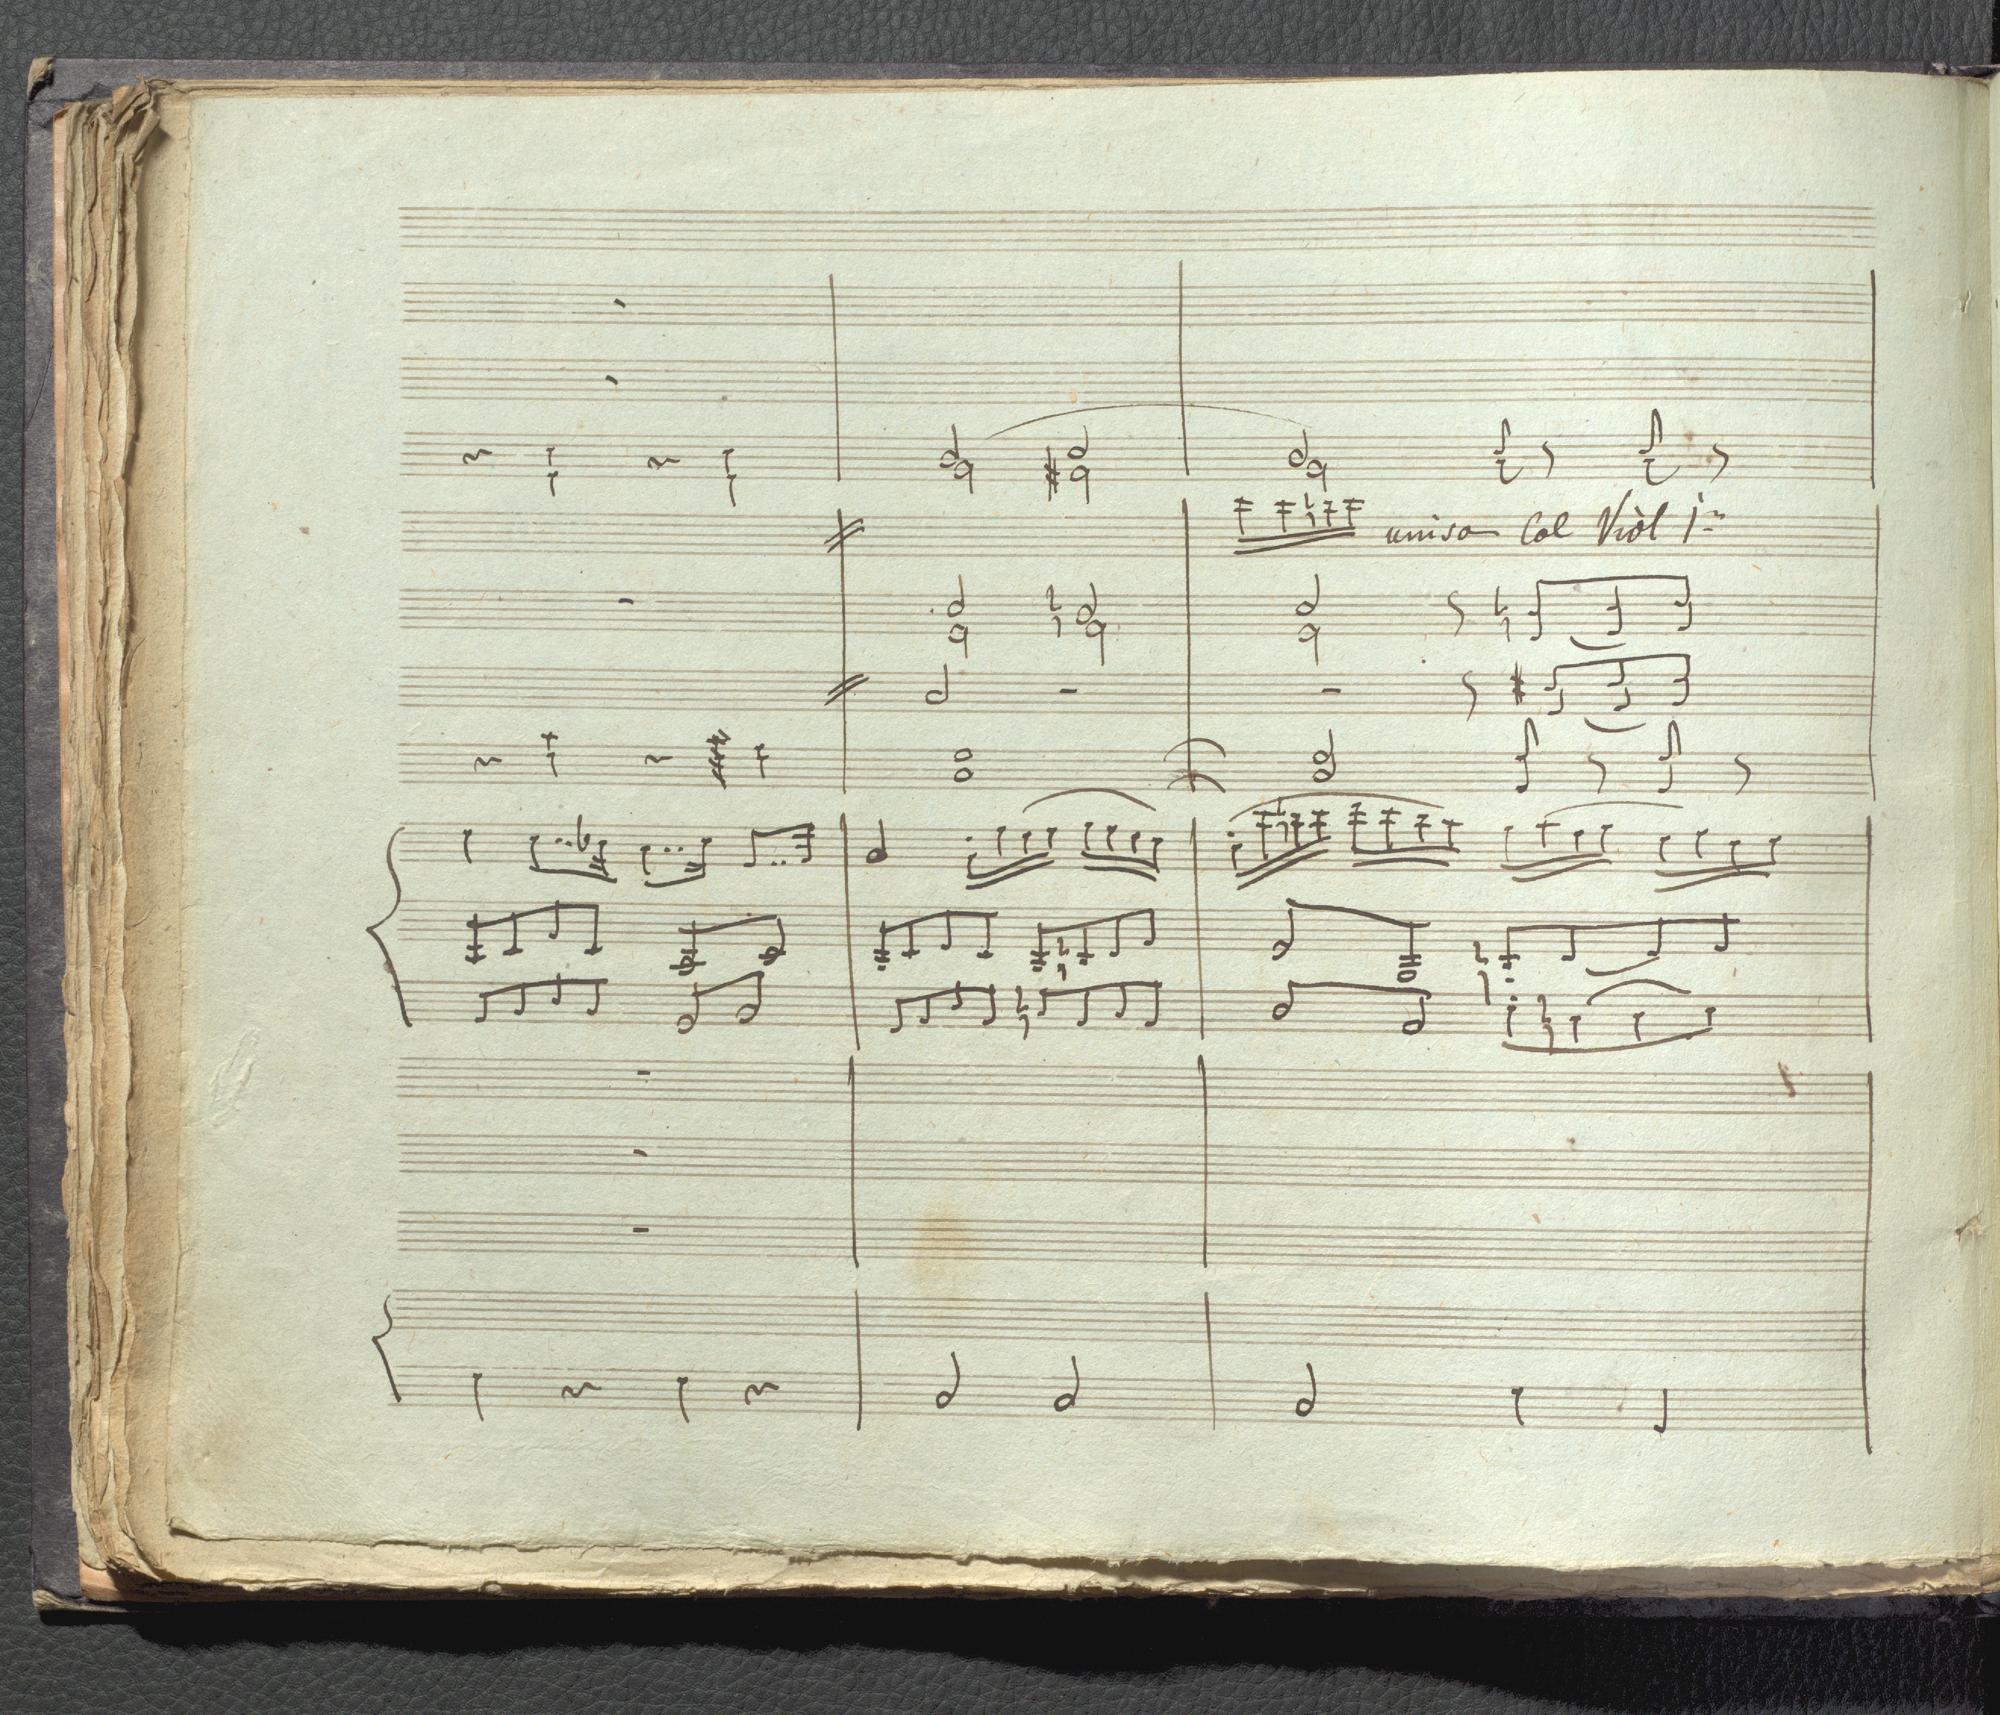 uniso Col Viol 1mo